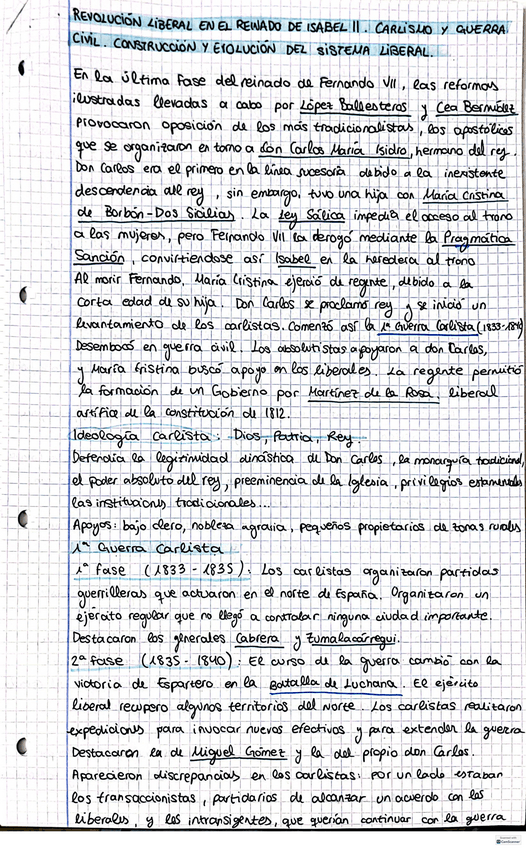 REVOLUCIÓN LIBERAL EN EL REINADO DE ISABEL II. CARLISMO Y GUERRA
CIVIL. CONSTRUCCIÓN Y EVOLUCIÓN DEL SISTEMA LIBERAL.
En la última fase del reinado de Fernando VII, las reformas
ilustradas llevadas a cabo por López Ballesteros y Cea Bermúdez
provocaron oposición de los más tradicionalistas, los apostólicos
que se organizaron en torno a don Carlos María Isidro, hermano del rey.
Don Carlos era el primero en la línea sucesoria debido a la inexistente
descendencia del rey, sin embargo, tuvo una hija con María Cristina
de Borbón-Dos Sicilias. La Ley Sálica impedía el acceso al trono
a las mujeres, pero Fernando VII la derogó mediante la Pragmática
Sanción, convirtiéndose así Isabel en la heredera al trono
Al morir Fernando, María Cristina ejerció de regente, debido a la
corta edad de su hija. Don Carlos se proclamó rey y se inició un
levantamiento de los carlistas. Comenzó así la 1ª Guerra Carlista (1833-1840)
Desembocó en guerra civil. Los absolutistas apoyaron a don Carlos,
y María Cristina buscó apoyo en los liberales. La regente permitió
la formación de un Gobierno por Martínez de la Rosa, liberal
artífice de la constitución de 1812.
Ideología Carlista: Dios, Patria, Rey.
Defendía la legitimidad dinástica de Don Carlos, la monarquía tradicional,
el poder absoluto del rey, preeminencia de la Iglesia, privilegios estamentales
las instituciones tradicionales...
Apoyos: bajo clero, nobleza agraria, pequeños propietarios de zonas rurales
1ª Guerra Carlista
1ª fase (1833-1835): Los carlistas organizaron partidas
guerrilleras que actuaron en el norte de España. Organizaron un
ejército regular que no llegó a controlar ninguna ciudad importante.
Destacaron los generales Cabrera y Zumalacárregui.
2ª fase (1835-1840): El curso de la guerra cambió con la
victoria de Espartero en la Batalla de Luchana. El ejército
liberal recuperó algunos territorios del norte. Los carlistas realizaron
expediciones para invocar nuevos efectivos y para extender la guerra
Destacaron la de Miguel Gómez y la del propio don Carlos.
Aparecieron discrepancias en los carlistas: por un lado estaban
los transaccionistas, partidarios de alcanzar un acuerdo con los
liberales, y los intransigentes, que querían continuar con la guerra